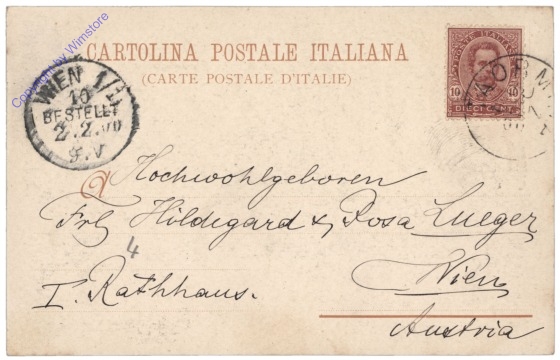 Copyright by Wimstore
CARTOLINA POSTALE ITALIANA
(CARTE POSTALE D'ITALIE)
POSTE ITALIANE
10 10
DIECI CENT.
TAORMI
WIEN 1/1
10
BESTELLT
2.2.00
9.V
Hochwohlgeboren
Frl Hildegard & Rosa Lueger
4
I. Rathhaus.
Wien
Austria